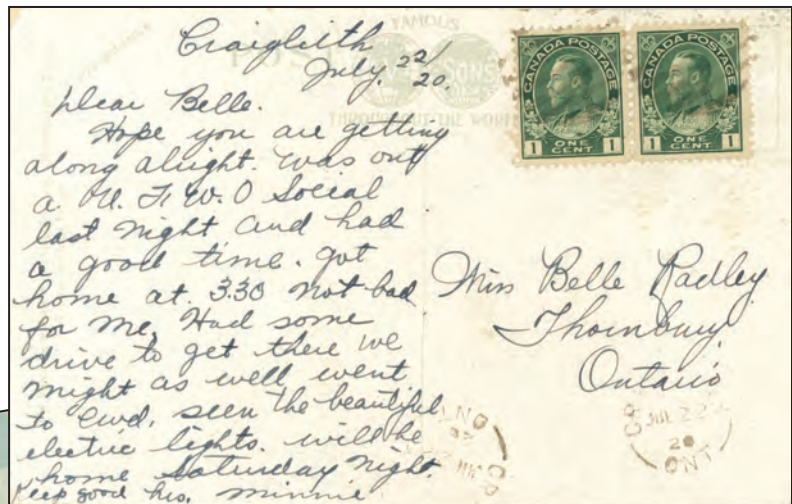 Craigleith
July. 22/20.
Dear Belle.
Hope you are getting
along alright. Was out
a. U. F. W. O Social
last night and had
a good time. got
home at. 3.30 not bad
for me. Had some
drive to get there we
might as well went
to Cwd. seen the beautiful
electric lights. will be
home Saturday night.
Keep good hrs. Minnie
FAMOUS
SONS
THROUGHOUT THE WORLD
CANADA POSTAGE
1 ONE CENT 1
CANADA POSTAGE
1 ONE CENT 1
Miss Belle Radley
Thornbury
Ontario
JUL 22
20
ONT